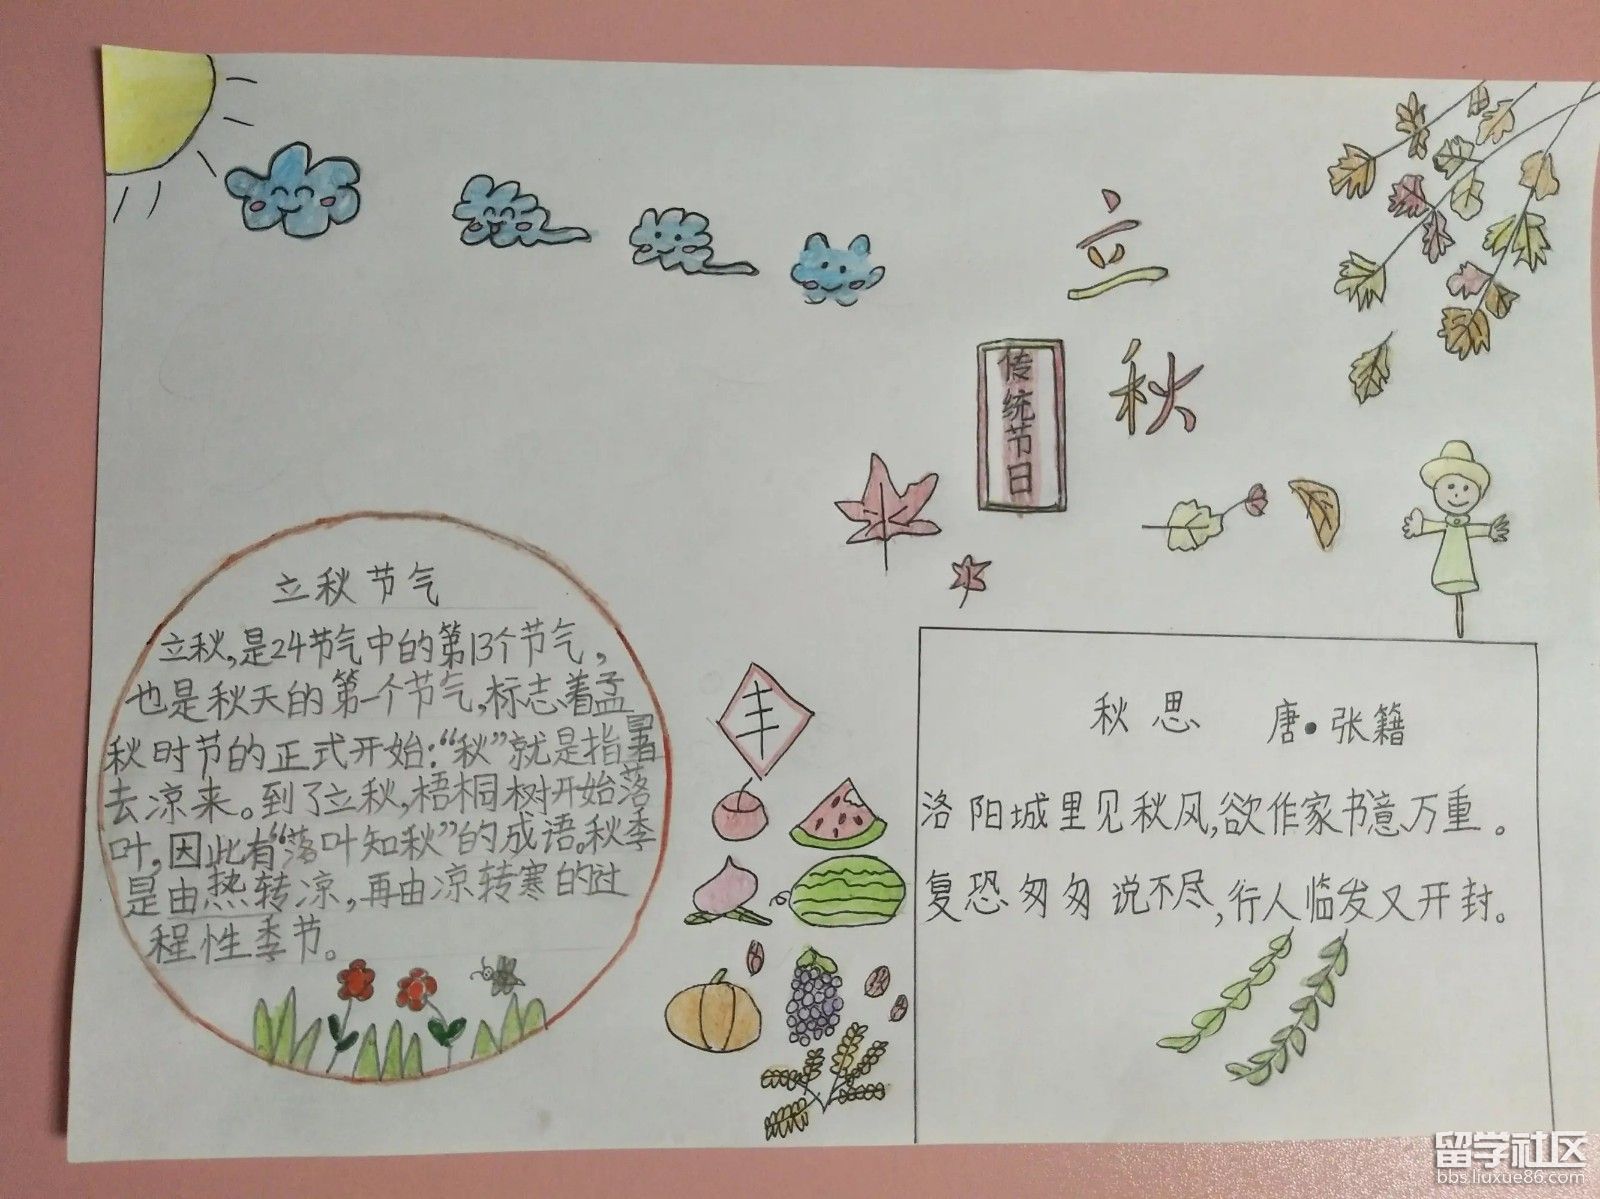 立秋
传统节日
立秋节气
立秋,是24节气中的第13个节气,
也是秋天的第一个节气,标志着孟
秋时节的正式开始:“秋”就是指暑
去凉来。到了立秋,梧桐树开始落
叶,因此有“落叶知秋”的成语。秋季
是由热转凉,再由凉转寒的过
程性季节。
丰
秋思 唐·张籍
洛阳城里见秋风,欲作家书意万重。
复恐匆匆说不尽,行人临发又开封。
留学社区
bbs.liuxue86.com